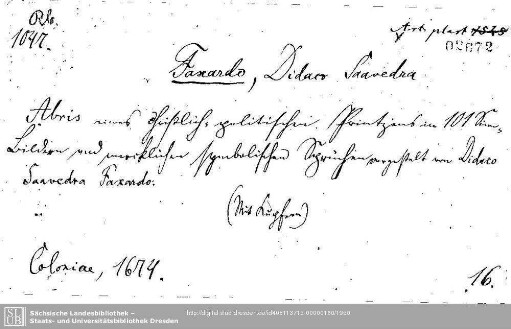 1047.
Art. plast. 1545
02672
Faxardo, Didaco Saavedra
Abris eines christlich-politischen Printzens in 101 Sinn-
bildern und mercklichen symbolischen Sprüchen vorgestelt von Didaco
Saavedra Faxardo.
(Mit Kupfern)
Coloniae, 1674.
16.
SLUB
Sächsische Landesbibliothek –
Staats- und Universitätsbibliothek Dresden